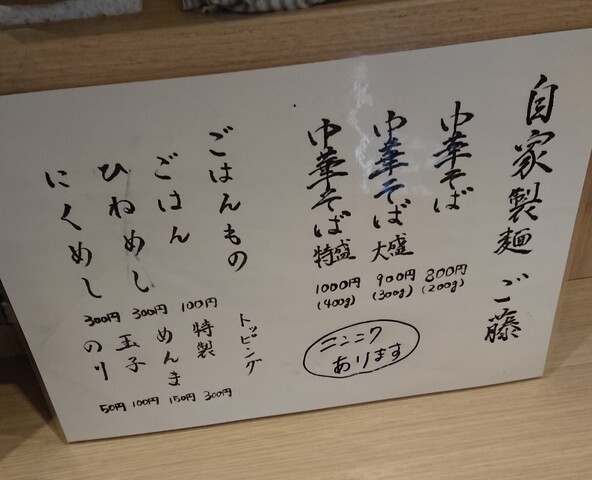 自家製麺 ご藤
中華そば 800円 (200g)
中華そば 大盛 900円 (300g)
中華そば 特盛 1000円 (400g)
ニンニクあります
ごはんもの
ごはん 100円
ひねめし 300円
にくめし 300円
トッピング
特製 300円
めんま 150円
玉子 100円
のり 50円